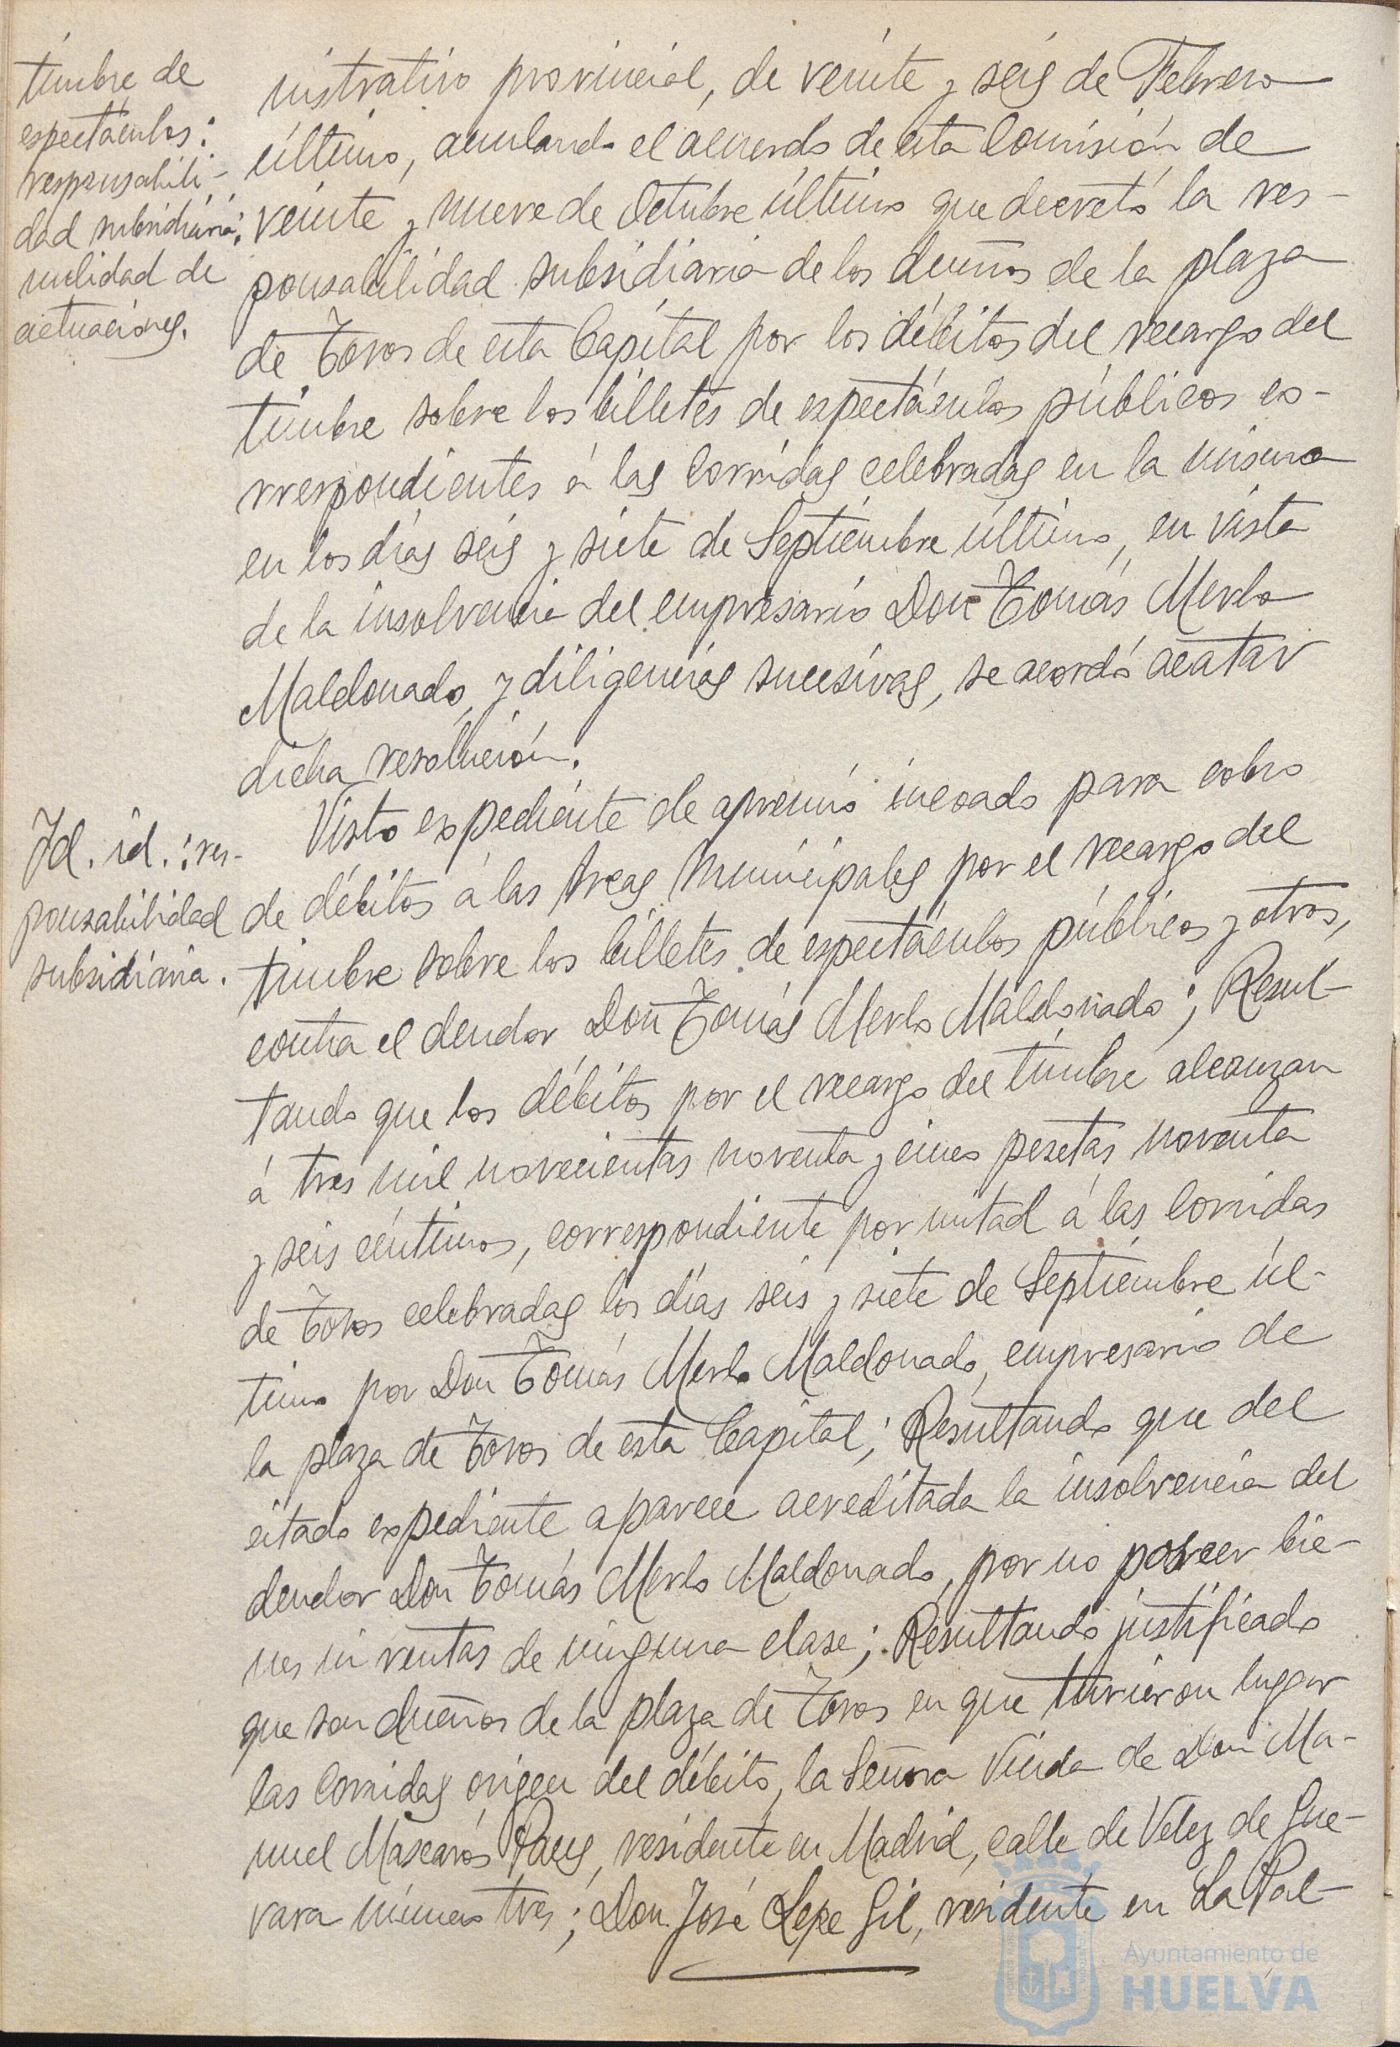 timbre de
espectáculos:
responsabili-
dad subsidiaria;
nulidad de
actuaciones.
nistrativo provincial, de veinte y seis de Febrero
último, anulando el acuerdo de esta Comisión de
veinte y nueve de Octubre último que decretó la res-
ponsabilidad subsidiaria de los dueños de la plaza
de Toros de esta Capital por los débitos del recargo del
timbre sobre los billetes de espectáculos públicos co-
rrespondientes á las corridas celebradas en la misma
en los días seis y siete de Septiembre último, en vista
de la insolvencia del empresario Don Tomás Merlo
Maldonado, y diligencias sucesivas, se acordó acatar
dicha resolución.
Id. id.: res-
ponsabilidad
subsidiaria.
Visto expediente de apremio incoado para cobro
de débitos á las Arcas Municipales por el recargo del
timbre sobre los billetes de espectáculos públicos y otros,
contra el deudor Don Tomás Merlo Maldonado; Resul-
tando que los débitos por el recargo del timbre alcanzan
á tres mil novecientas noventa y cinco pesetas noventa
y seis céntimos, correspondiente por mitad á las Corridas
de Toros celebradas los días seis y siete de Septiembre úl-
timo por Don Tomás Merlo Maldonado, empresario de
la plaza de Toros de esta Capital; Resultando que del
citado expediente aparece acreditada la insolvencia del
deudor Don Tomás Merlo Maldonado, por no poseer bie-
nes ni rentas de ninguna clase; Resultando justificado
que son dueños de la plaza de Toros en que tuvieron lugar
las Corridas origen del débito, la Señora Viuda de Don Ma-
nuel Mascarós Paus, residente en Madrid, calle de Velez de Gue-
vara número tres; Don José Lepe Gil, residente en La Pal-
Ayuntamiento de
HUELVA